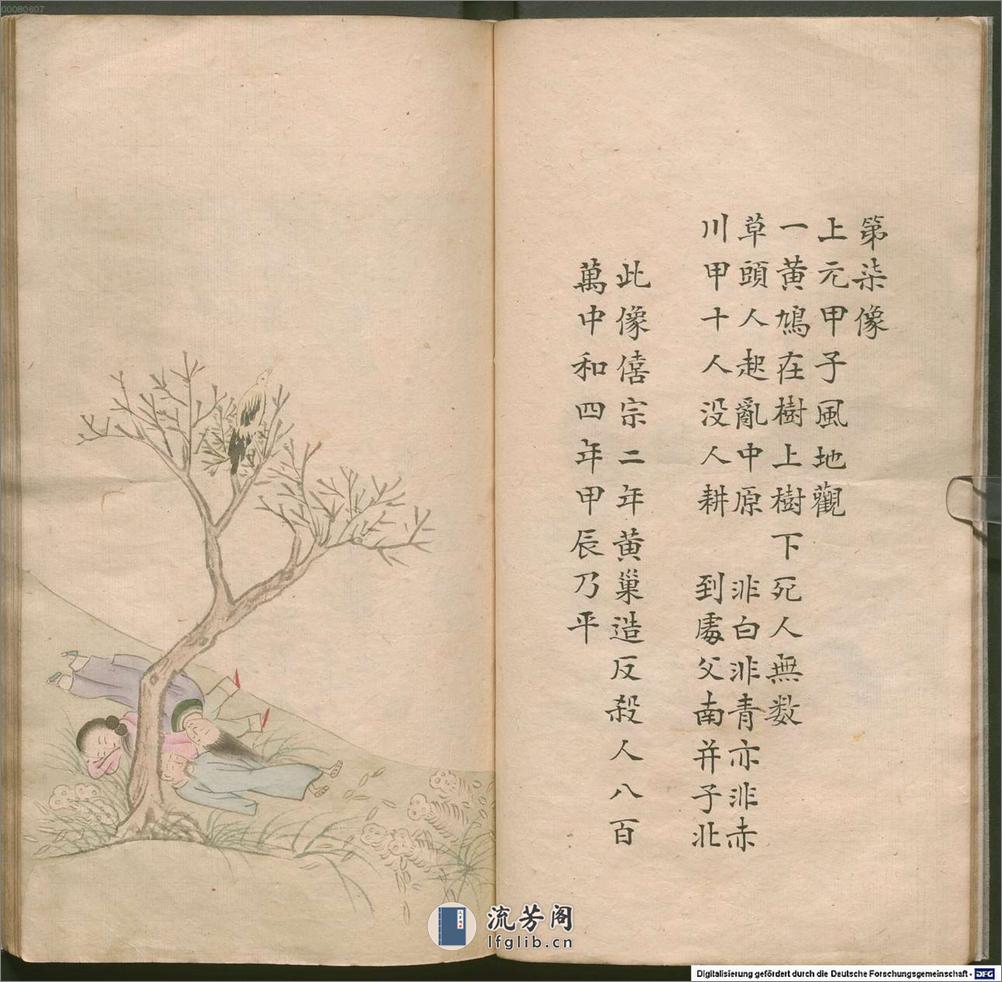 00080607
第柒像
上元甲子風地觀
一黃鳩在樹上樹下死人無数
草頭人起亂中原 非白非青亦非赤
川甲十人没人耕 到處父南并子北
此像僖宗二年黃巢造反殺人八百
萬中和四年甲辰乃平
流芳阁
lfglib.cn
Digitalisierung gefördert durch die Deutsche Forschungsgemeinschaft - DFG